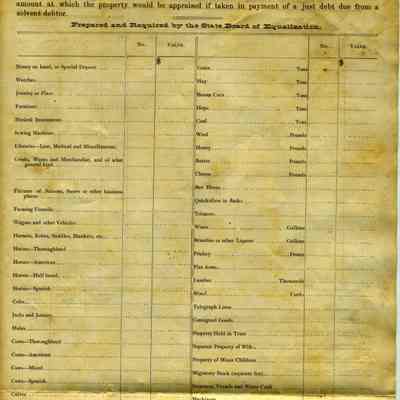 amount at which the property would be appraised if taken in payment of a just debt due from a
solvent debtor.
Prepared and Required by the State Board of Equalization.
No. VALUE. No. VALUE.
$ $
Money on hand, or Special Deposit
Watches
Jewelry or Plate
Furniture
Musical Instruments
Sewing Machines
Libraries—Law, Medical and Miscellaneous
Goods, Wares and Merchandise, and of what
general kind
Fixtures of Saloons, Stores or other business
places
Farming Utensils
Wagons and other Vehicles
Harness, Robes, Saddles, Blankets, etc.
Horses—Thoroughbred
Horses—American
Horses—Half breed
Horses—Spanish
Colts
Jacks and Jennies
Mules
Cows—Thoroughbred
Cows—American
Cows—Mixed
Cows—Spanish
Calves
Grain Tons
Hay Tons
Broom Corn Tons
Hops Tons
Coal Tons
Wool Pounds
Honey Pounds
Butter Pounds
Cheese Pounds
Bee Hives
Quicksilver in flasks
Tobacco
Wines Gallons
Brandies or other Liquors Gallons
Poultry Dozen
Fire Arms
Lumber Thousands
Wood Cords
Telegraph Lines
Consigned Goods
Property Held in Trust
Separate Property of Wife
Property of Minor Children
Migratory Stock (separate list)
Steamers, Vessels and Water Craft
Machinery